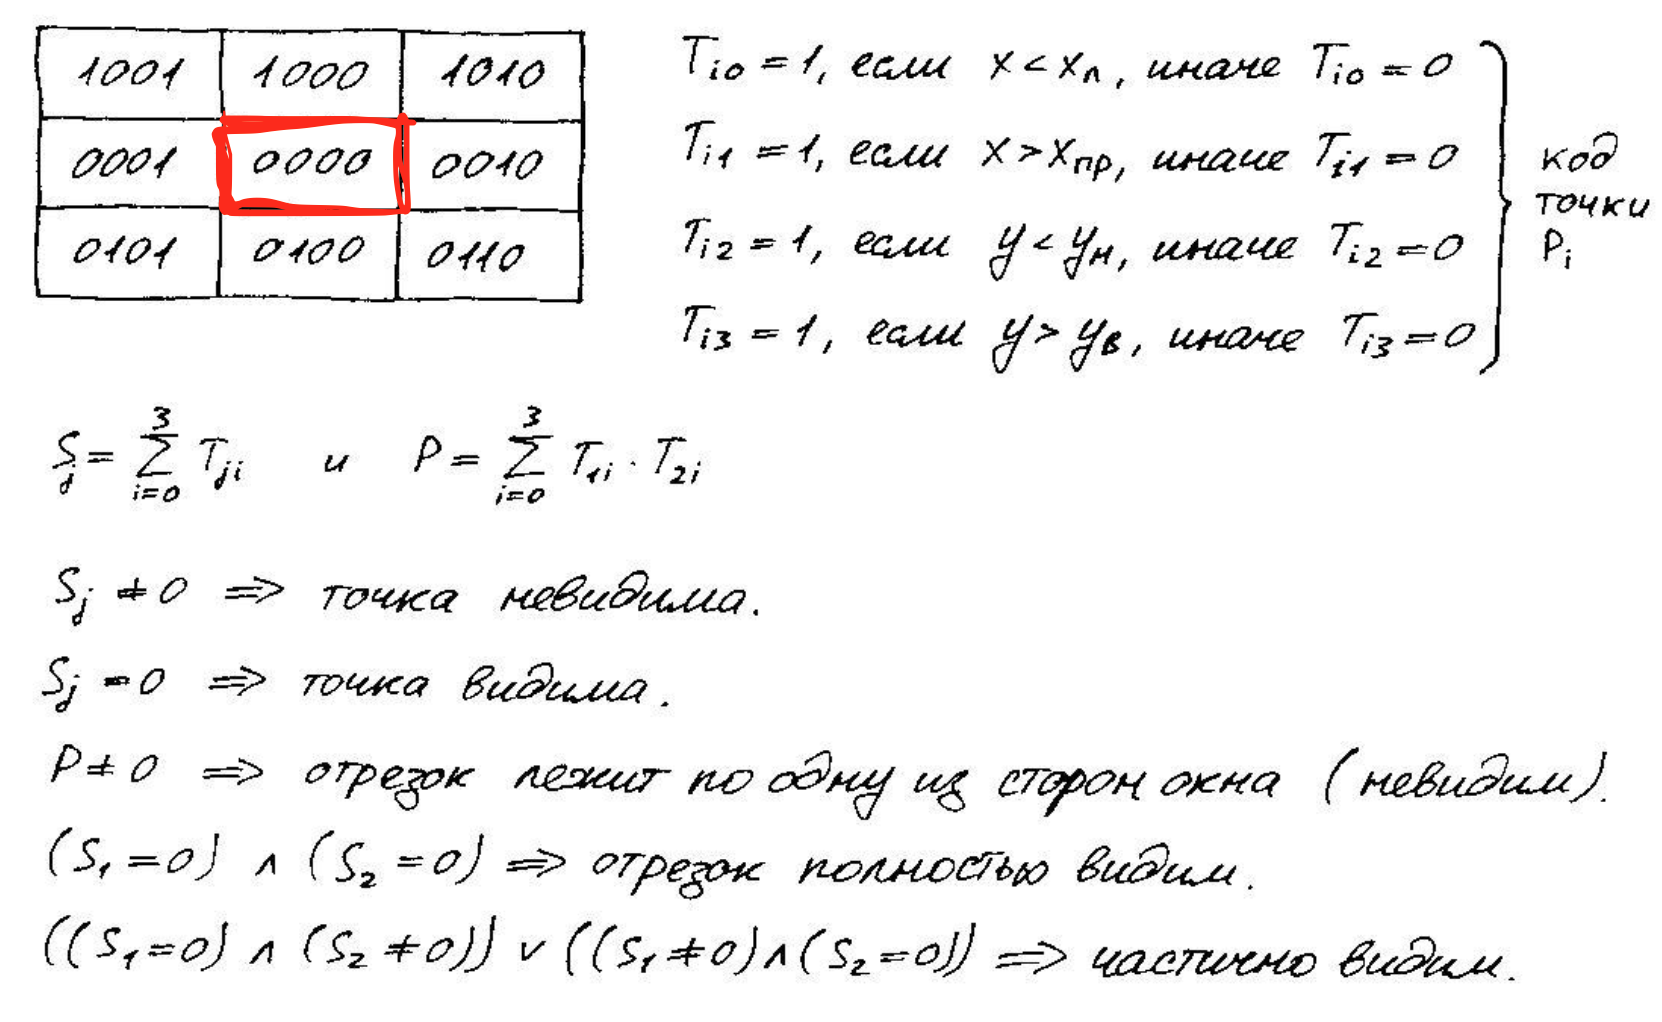 1001 1000 1010
0001 0000 0010
0101 0100 0110
Tᵢ₀ = 1, если x < xл, иначе Tᵢ₀ = 0
Tᵢ₁ = 1, если x > xпр, иначе Tᵢ₁ = 0
Tᵢ₂ = 1, если y < yн, иначе Tᵢ₂ = 0
Tᵢ₃ = 1, если y > yв, иначе Tᵢ₃ = 0
код
точки
Pᵢ
Sⱼ = ∑_{i=0}^{3} Tⱼᵢ и P = ∑_{i=0}^{3} T₁ᵢ · T₂ᵢ
Sⱼ ≠ 0 ⇒ точка невидима.
Sⱼ = 0 ⇒ точка видима.
P ≠ 0 ⇒ отрезок лежит по одну из сторон окна (невидим).
(S₁ = 0) ∧ (S₂ = 0) ⇒ отрезок полностью видим.
((S₁ = 0) ∧ (S₂ ≠ 0)) ∨ ((S₁ ≠ 0) ∧ (S₂ = 0)) ⇒ частично видим.